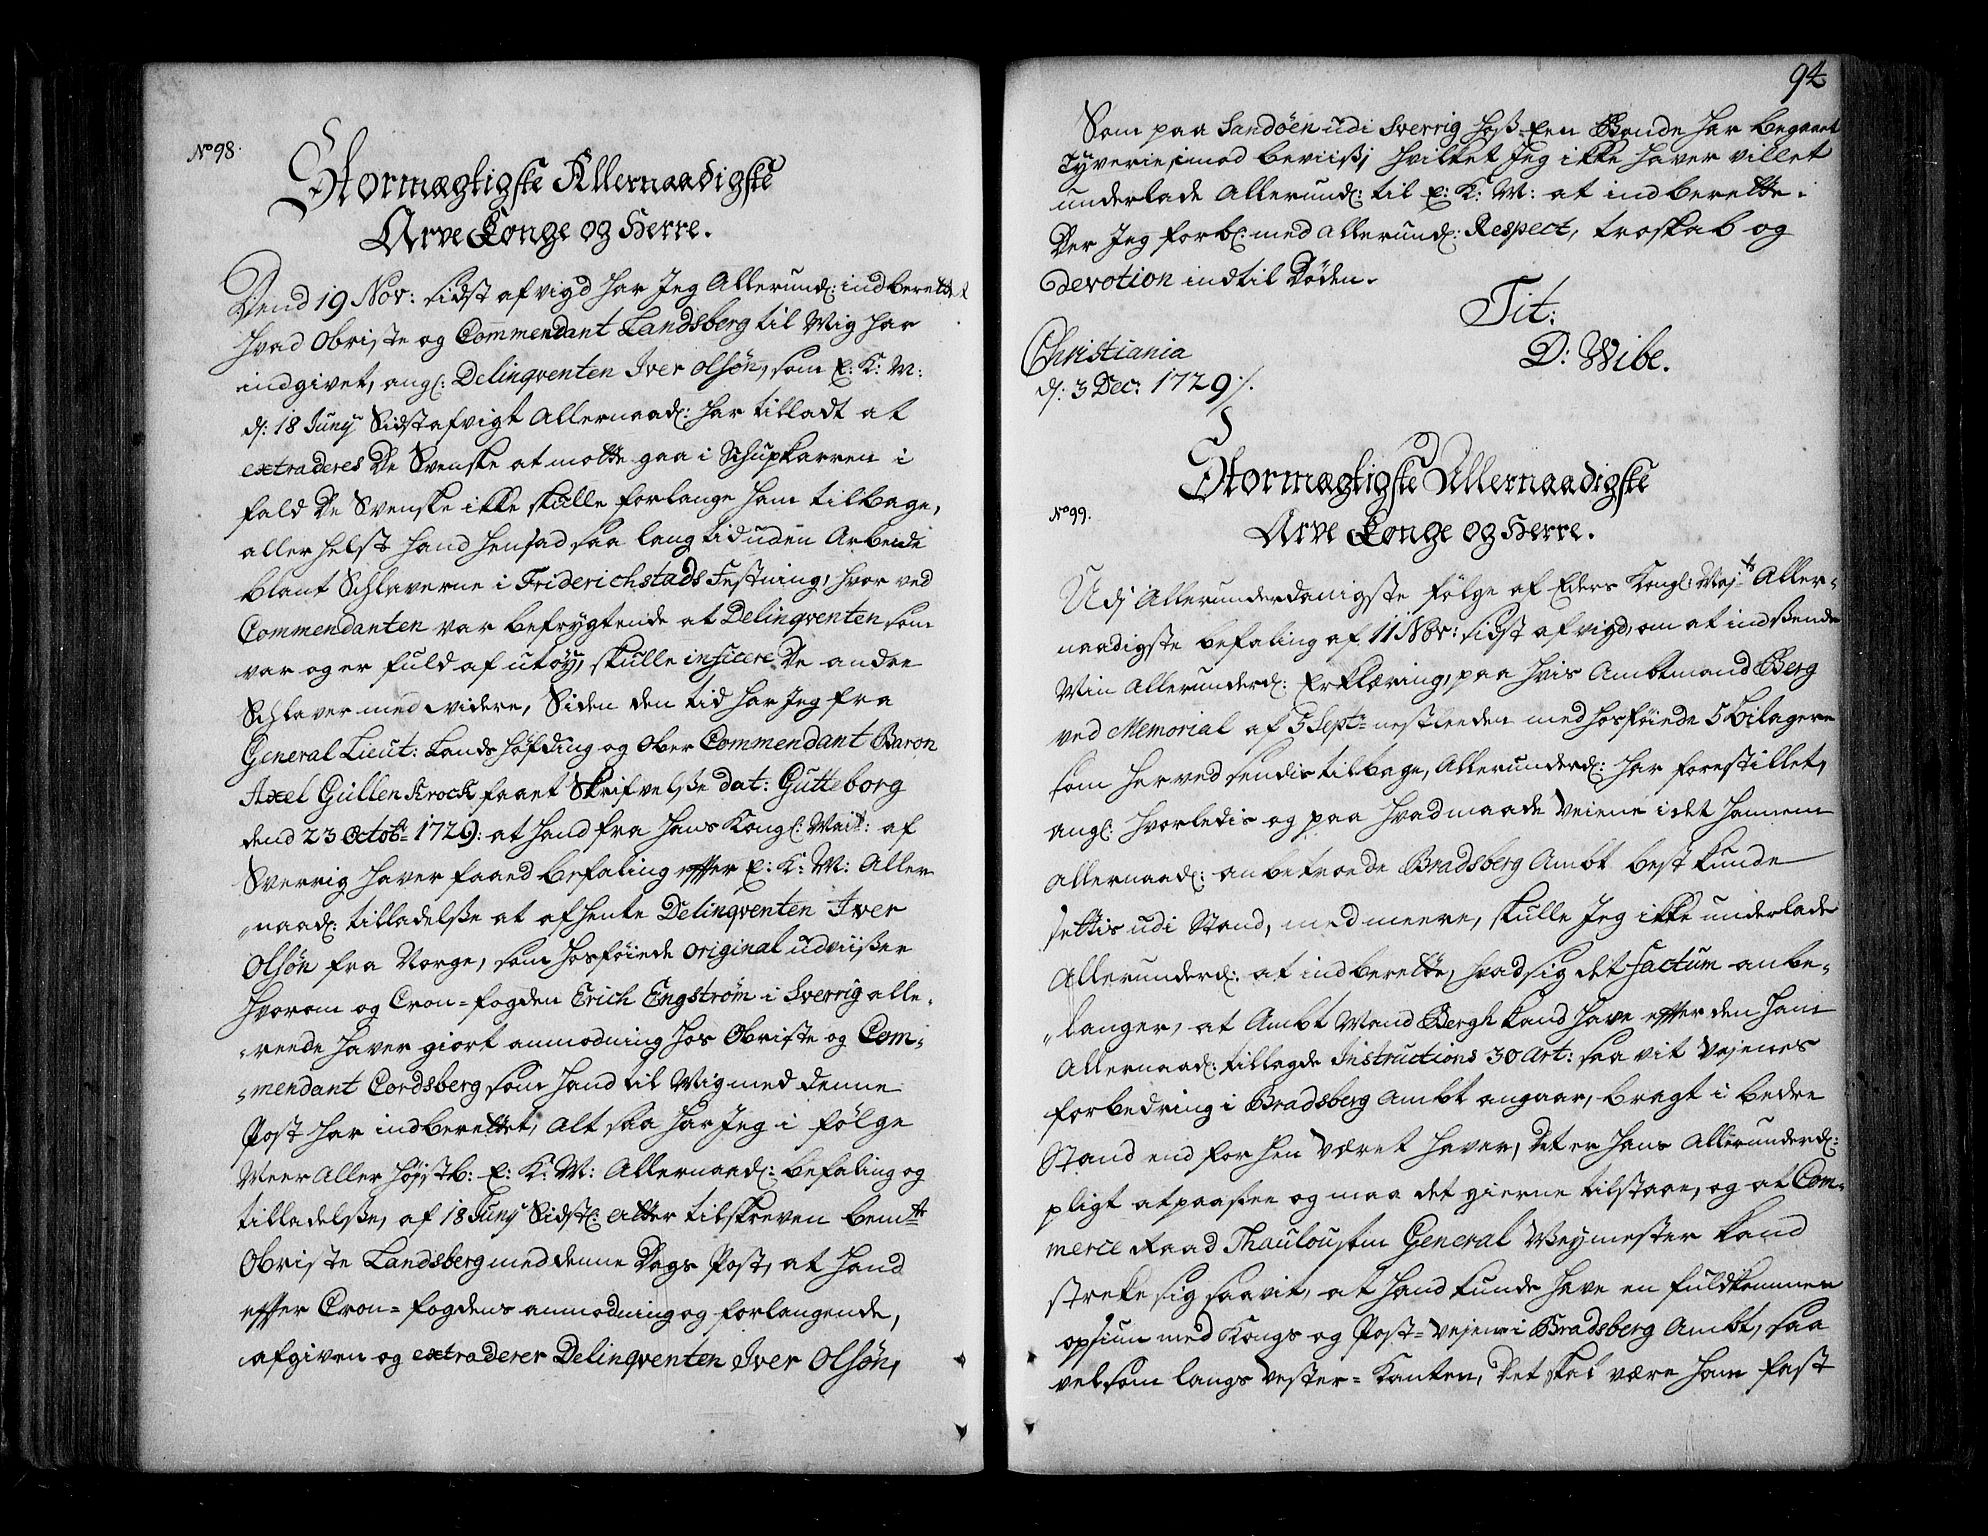 No 98.
Stormægtigste Allernaadigste
Arve Konge og Herre.
Dend 19 Nov: sidst afvigd har Jeg Allerund: indberettet
hvad Obriste og Commendant Landsberg til Mig har
indgivet, ang: Delinqventen Iver Olsøn, som E: K: M:
d: 18 Juny Sidstafvigt Allernaad: har tilladt at
extraderes De Svenske at motte gaa i Schupkarren i
fald De Svenske ikke skulle forlange ham tilbage,
allerhelst hand hensad saa lang tid uden Arbeide
blant Schlaverne i Friderichstads Festning, hvor ved
Commendanten var befrygtende at Delinqventen som
var og er fuld af utøy, skulle inficere De andre
Schlaver med videre, Siden den tid har Jeg fra
General Lieut: Landshøfding og Ober Commendant Baron
Axel Güllenkrock faaet Skrifvelße dat: Gütteborg
dend 23 Octobr 1729: at hand fra Hans Kongl: Mait: af
Sverrig haver faaed befaling effter E: K: M: Aller
naad: tilladelße at afhente Delinqventen Iver
Olsøn fra Norge, som hosføiede original udviißer
hvorom og Cron-fogden Erich Engstrøm i Sverrig alle,
reede haver giort anmodning hos Obriste og Com,
mendant Cordsberg som hand til Mig med denne
Post har indberettet, Alt saa har Jeg i følge
Meer Aller høystb: E: K: M: Allernaad: befaling og
tilladelße, af 18 Juny Sidstl: atter tilskreven bemte
Obriste Landsberg med denne Dags Post, at hand
effter Cron-fogdens anmodning og forlangende,
afgiven og extraderer Delinqventen Iver Olsøn,
94
Som paa Sandøen udi Sverrig hoß Een Bonde har begaaet
Tyverie imod beviiß, hvilket Jeg ikke haver villet
underlade Allerund: til E: K: M: at indberette.
Der Jeg forb: med allerund: Respect, troskab og
Devotion indtil Døden.
Tit:
D: Wibe.
Christiania
d: 3 Dec: 1729 ./.
No 99.
Stormægtigste Allernaadigste
Arve Konge og Herre.
Udj Allerunderdanigste følge af Eders Kongl: Majt Aller-
naadigste befaling af 11 Nov: sidst afvigd, om at indsßende
Min Allerunderd: Erklæring, paa hvis Ambtmand Berg
ved Memorial af 5 Septr nestleeden med hosføiede 5 bilagere
som herved sendis tilbage, Allerunderd: har forestillet,
angl: hvorledis og paa hvad maade Veiene i det hannem
Allernaad: anbetroede Bradsberg Ambt best kunde
settis udi Stand, med meere, skulle Jeg ikke underlade
Allerunderd: at indberette, hvad sig det factum anbe,
langer, at Ambt Mand Bergh kand have effter den ham
Allernaad: tillagde Instructions 30 Art: saa vit Vejenes
forbedring i Bradsberg Ambt angaar, bragt i bedre
Stand end forhen været haver, Det er hans Allerunderd:
pligt at paaßee og maa det gierne tilstaae, og at Com,
merce Raad Thaulou som General Weymester kand
streke sig saavit, at hand kunde have en fuldkommen
opsiun med Kongs og Post-Vejene i Bradsberg Ambt, saa
velsom langs Vester-Kanten, Det skal være ham fast